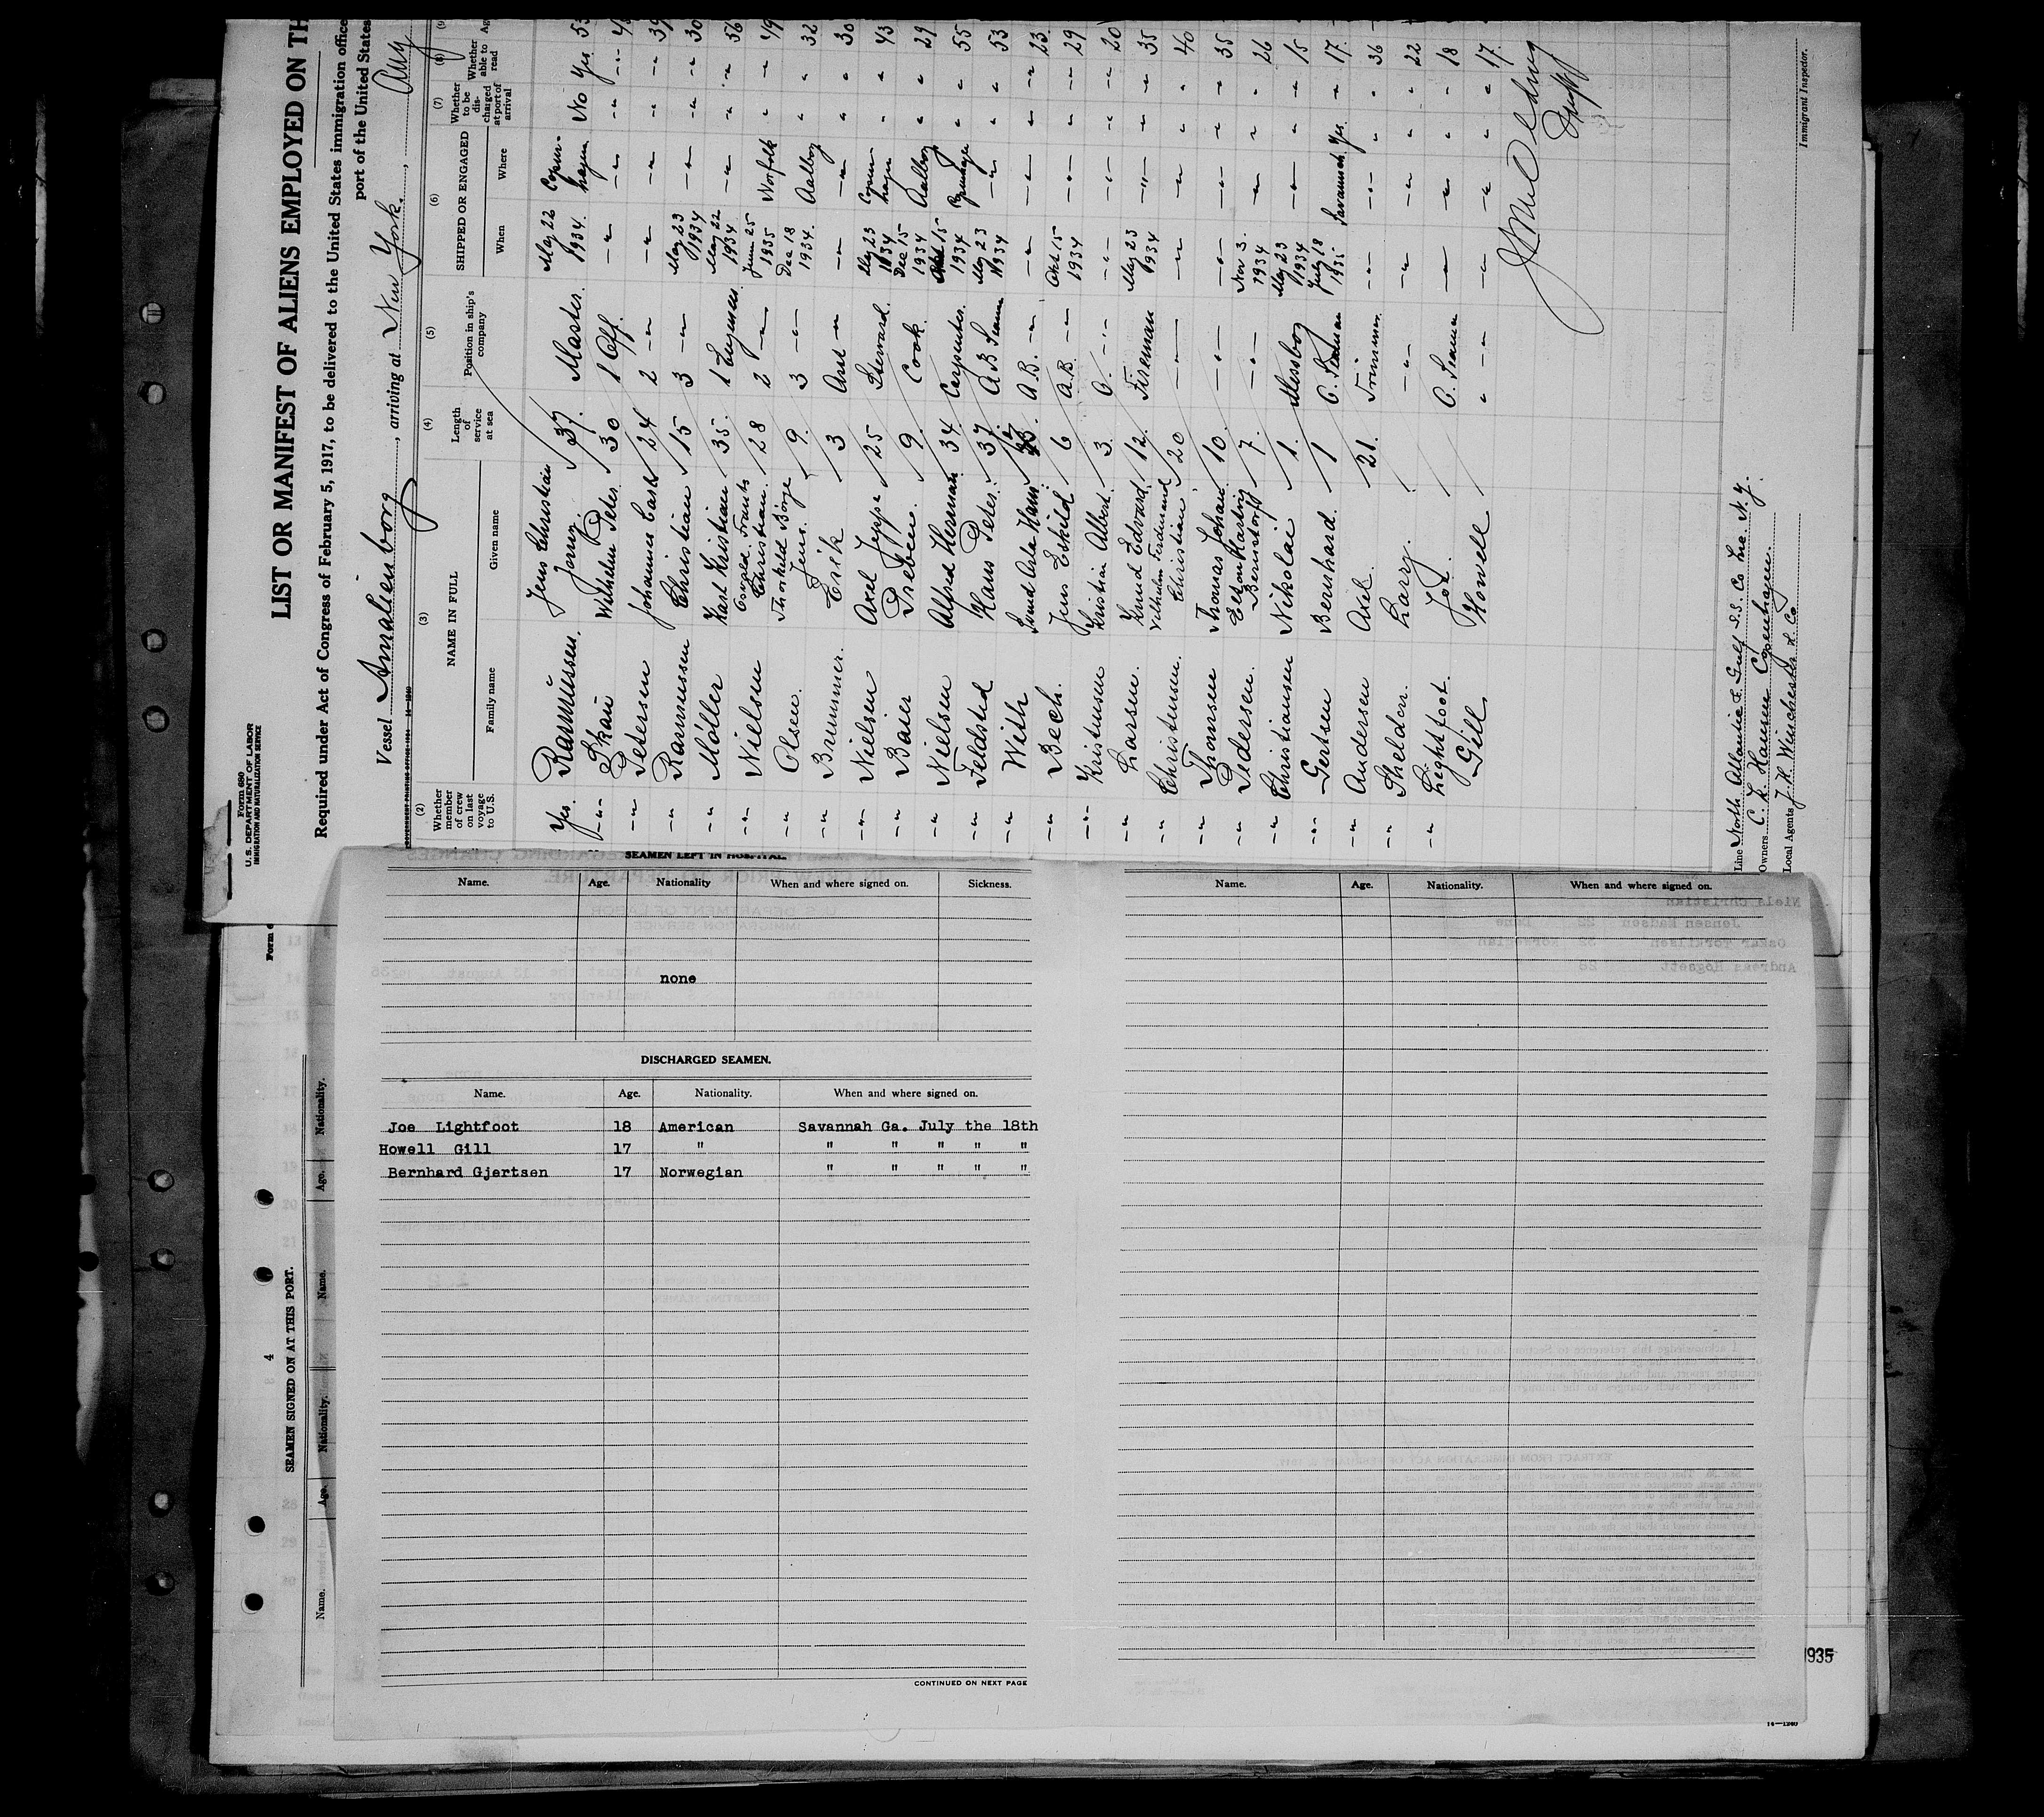 Form 680
U.S. DEPARTMENT OF LABOR
IMMIGRATION AND NATURALIZATION SERVICE
LIST OR MANIFEST OF ALIENS EMPLOYED ON TH
Required under Act of Congress of February 5, 1917, to be delivered to the United States immigration office
port of the United States
Vessel Amalienborg, arriving at New York., Aug
(2) (3) (4) (5) (6) (7) (8) (9)
Whether member of crew on last voyage to U.S.
NAME IN FULL
Family name Given name
Length of service at sea
Position in ship's company
SHIPPED OR ENGAGED
When Where
Whether to be discharged at port of arrival
Whether able to read
Yes. Rasmussen. Jens Christian 37. Master. May 22 1934 Copenhagen No Yes 53
-"- Skau Jonny. 30 1 Off. -"- -"- -"- -"-
-"- Petersen Wilhelm Peter 24 2 -"- -"- -"- -"- -"- 39
-"- Rasmussen Johannes Carl Christian 15 3 -"- May 23 1934 -"- -"- -"- 30
-"- Møller Karl Kristian 35. 1 Engineer. May 22 1934 -"- " -"- 56
-"- Nielsen Osvald Frants Christian. 28 2 -"- June 25 1935 Norfolk " -"- 49
-"- Olsen. Thorkild Börge Jens. 9. 3 -"- Dec 18 1934. Aalborg " " 32
-"- Brummer. Erik 3 Asst -"- -"- -"- " " 30
-"- Nielsen Axel Jeppe 25 Steward. May 23 1934 Copenhagen " " 43
-"- Baier Preben. 9. Cook. Dec 15 1934 Aalborg " " 29
-"- Nielsen Alfred Herman 34. Carpenter. Okt 15 1934 Copenhagen " " 55
-"- Feldsted Hans Peter. 37. A B Seaman May 23 1934 -"- " " 53
-"- With A.B. -"- -"- -"- " -"- 23
-"- Bech. Jens Eskild 6 A.B. -"- Okt 15 1934 -"- " -"- 29
-"- Kristensen Kristian Albert. 3. O. -"- -"- -"- " -"- 20
-"- Larsen. Knud Edvard. 12. Fireman May 23 1934 -"- " " 35
-"- Christensen. Vilhelm Ferdinand Christian 20 -"- -"- -"- " " 40
-"- Thomsen Thomas Johan 10. -"- -"- -"- " " 35
-"- Pedersen. Bernstorff 7. -"- Nov 3. 1934 -"- " " 26
-"- Christiansen Nikolai 1. Messboy May 23 1934 -"- " -"- 15
-"- Gertsen Bernhard. 1 O. Seaman July 18 1935 Savannah Yes. " 17.
-"- Andersen Axel. 21. Trimmer. -"- -"- " " 36
-"- Sheldon. Larry. -"- -"- -"- " " 22
-"- Lightfoot. Joe. O. Seaman -"- -"- " " 18
Gill Howell " -"- -"- -"- " " 17.
Line North Atlantic & Gulf S.S. Co Inc. N.Y.
Owners C. K. Hansen Copenhagen.
Local Agents J. H. Winchester & Co
Immigrant Inspector.
SEAMEN LEFT IN HOSPITAL.
Name. Age. Nationality When and where signed on. Sickness.
none
DISCHARGED SEAMEN.
Name. Age. Nationality. When and where signed on.
Joe Lightfoot 18 American Savannah Ga. July the 18th
Howell Gill 17 " " " " " "
Bernhard Gjertsen 17 Norwegian " " " " "
CONTINUED ON NEXT PAGE
Name. Age. Nationality. When and where signed on.
4
SEAMEN SIGNED ON AT THIS PORT.
Name. Age. Nationality. Name. Age. Nationality.
1935
14—1240